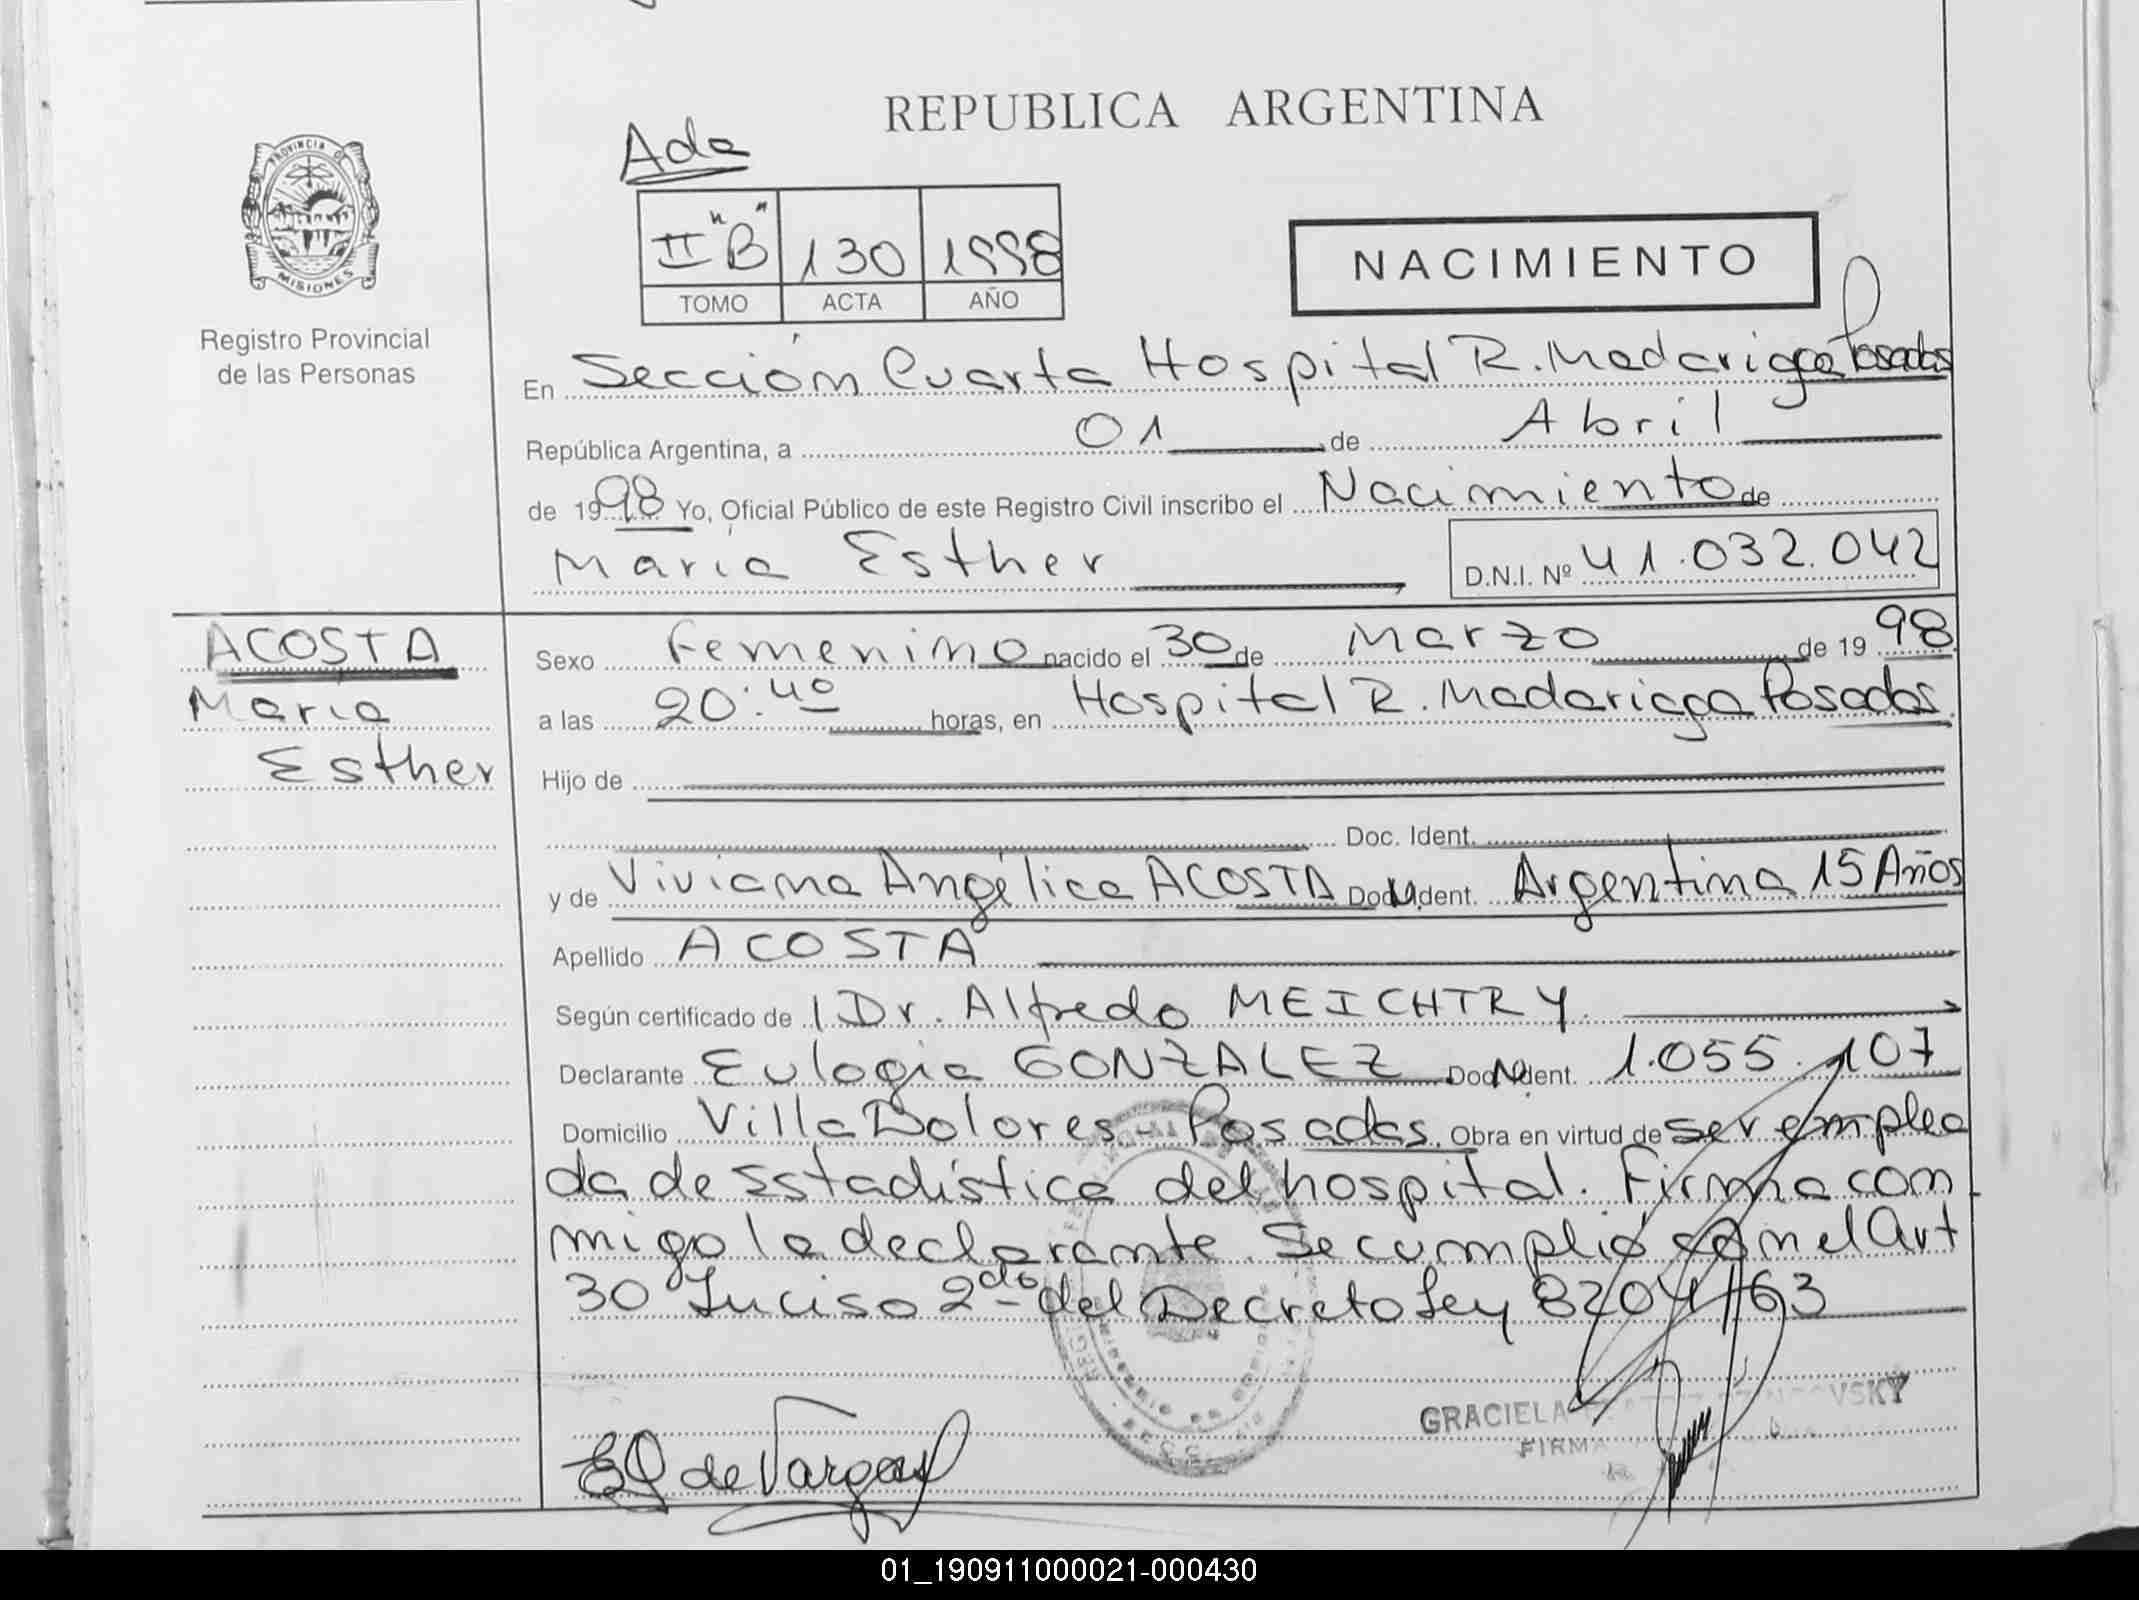 REPUBLICA ARGENTINA
Ada
PROVINCIA DE
MISIONES
Registro Provincial
de las Personas
II "B" 130 1998
TOMO ACTA AÑO
NACIMIENTO
En Sección Cuarta Hospital R. Madariaga Posadas
República Argentina, a 01 de Abril
de 1998 Yo, Oficial Público de este Registro Civil inscribo el Nacimiento de
María Esther
D.N.I. Nº 41.032.042
ACOSTA
María
Esther
Sexo Femenino nacido el 30 de Marzo de 1998
a las 20:40 horas, en Hospital R. Madariaga Posadas
Hijo de
Doc. Ident.
y de Viviana Angélica ACOSTA Doc. Ident. Argentina 15 Años
Apellido ACOSTA
Según certificado de Dr. Alfredo MEICHTRY
Declarante Eulogia GONZALEZ Doc. Ident. 1.055.107
Domicilio Villa Dolores - Posadas. Obra en virtud de ser emplea
da de Estadística del hospital. Firma con
migo la declarante. Se cumplió con el Art
30 Inciso 2do del Decreto Ley 8204/63
GRACIELA
VSKY
FIRMA
EG de Vargas
01_190911000021-000430